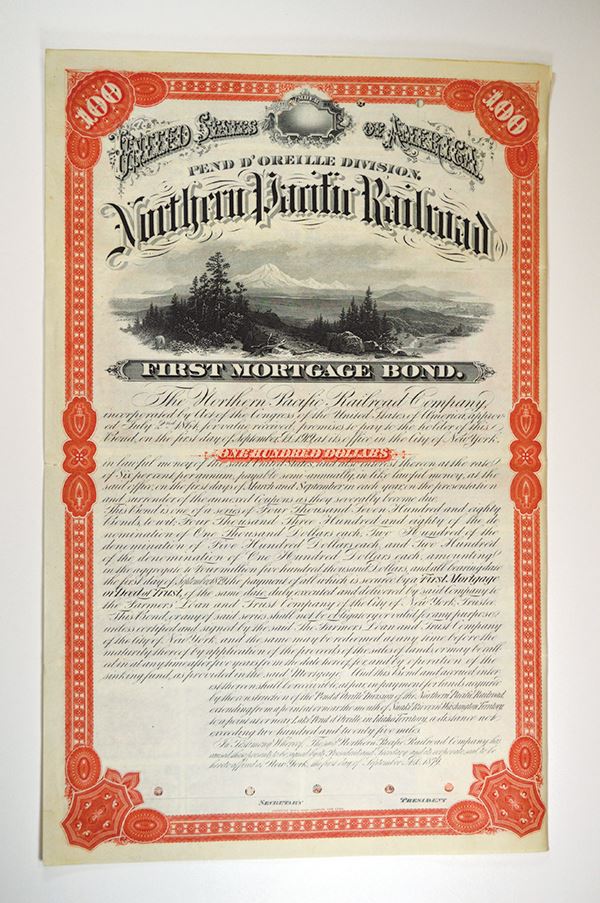 100
NUMBER
100
UNITED STATES OF AMERICA.
PEND D'OREILLE DIVISION.
Northern Pacific Railroad
FIRST MORTGAGE BOND.
The Northern Pacific Railroad Company,
incorporated by Act of the Congress of the United States of America, approv-
ed July 2nd 1864, for value received, promises to pay to the holder of this
Bond, on the first day of September at its office in the City of New York.
ONE HUNDRED DOLLARS
in lawful money of the said United States, and also interest thereon at the rate
of Six per cent per annum, payable semi-annually, in like lawful money, at
said office, on the first days of March and September, in each year, on the presentation
and surrender of the annexed Coupons as they severally become due.
This Bond is one of a series of Four Thousand Seven Hundred and eighty
Bonds, to wit: Four Thousand Three Hundred and eighty of the de-
nomination of One Thousand Dollars each, Two Hundred of the
denomination of Five Hundred Dollars each, and Two Hundred
of the denomination of One Hundred Dollars each, amounting
in the aggregate to Four million five hundred thousand Dollars, and all bearing date
the first day of September the payment of all which is secured by a First Mortgage
or Deed of Trust, of the same date, duly executed and delivered by said Company to
the Farmers Loan and Trust Company of the City of New York, Trustee.
This Bond, or any of said series, shall not be obligatory or valid for any purpose
unless certified and signed by the said The Farmers Loan and Trust Company
of the city of New York, and the same may be redeemed at any time before the
maturity thereof by application of the proceeds of the sales of lands, or may be call-
ed in at any time after five years from the date hereof, for and by operation of the
sinking fund, as provided in the said Mortgage. And this Bond and accrued inter-
est thereon shall be receivable, at par, in payment for lands acquired
by the construction of the Pend d'Oreille Division of the Northern Pacific Railroad,
extending from a point at or near the mouth of Snake River in Washington Territory
to a point at or near Lake Pend d'Oreille in Idaho Territory, a distance not
exceeding two hundred and twenty five miles.
In Testimony Whereof, The said Northern Pacific Railroad Company has
caused these presents to be signed by its President and Secretary and its corporate seal to be
hereto affixed at New York, the first day of September 1879.
SECRETARY PRESIDENT